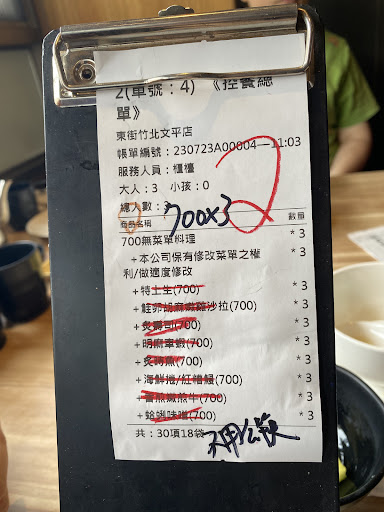 2(單號:4) 《控餐總
單》
東街竹北文平店
帳單編號:230723A00004—11:03
服務人員:櫃檯
大人:3 小孩:0
總人數:3
2
700x3
商品名稱 數量
700無菜單料理 *3
+本公司保有修改菜單之權 *3
利/做適度修改
+特士生(700) *3
+鮭卵胡麻嫩雞沙拉(700) *3
+炙壽司(700) *3
+明麻車蝦(700) *3
+炙烤魚(700) *3
+海鮮捲/紅糟鰻(700) *3
+香煎嫩煎牛(700) *3
+蛤蜊味噌(700) *3
共:30項18袋